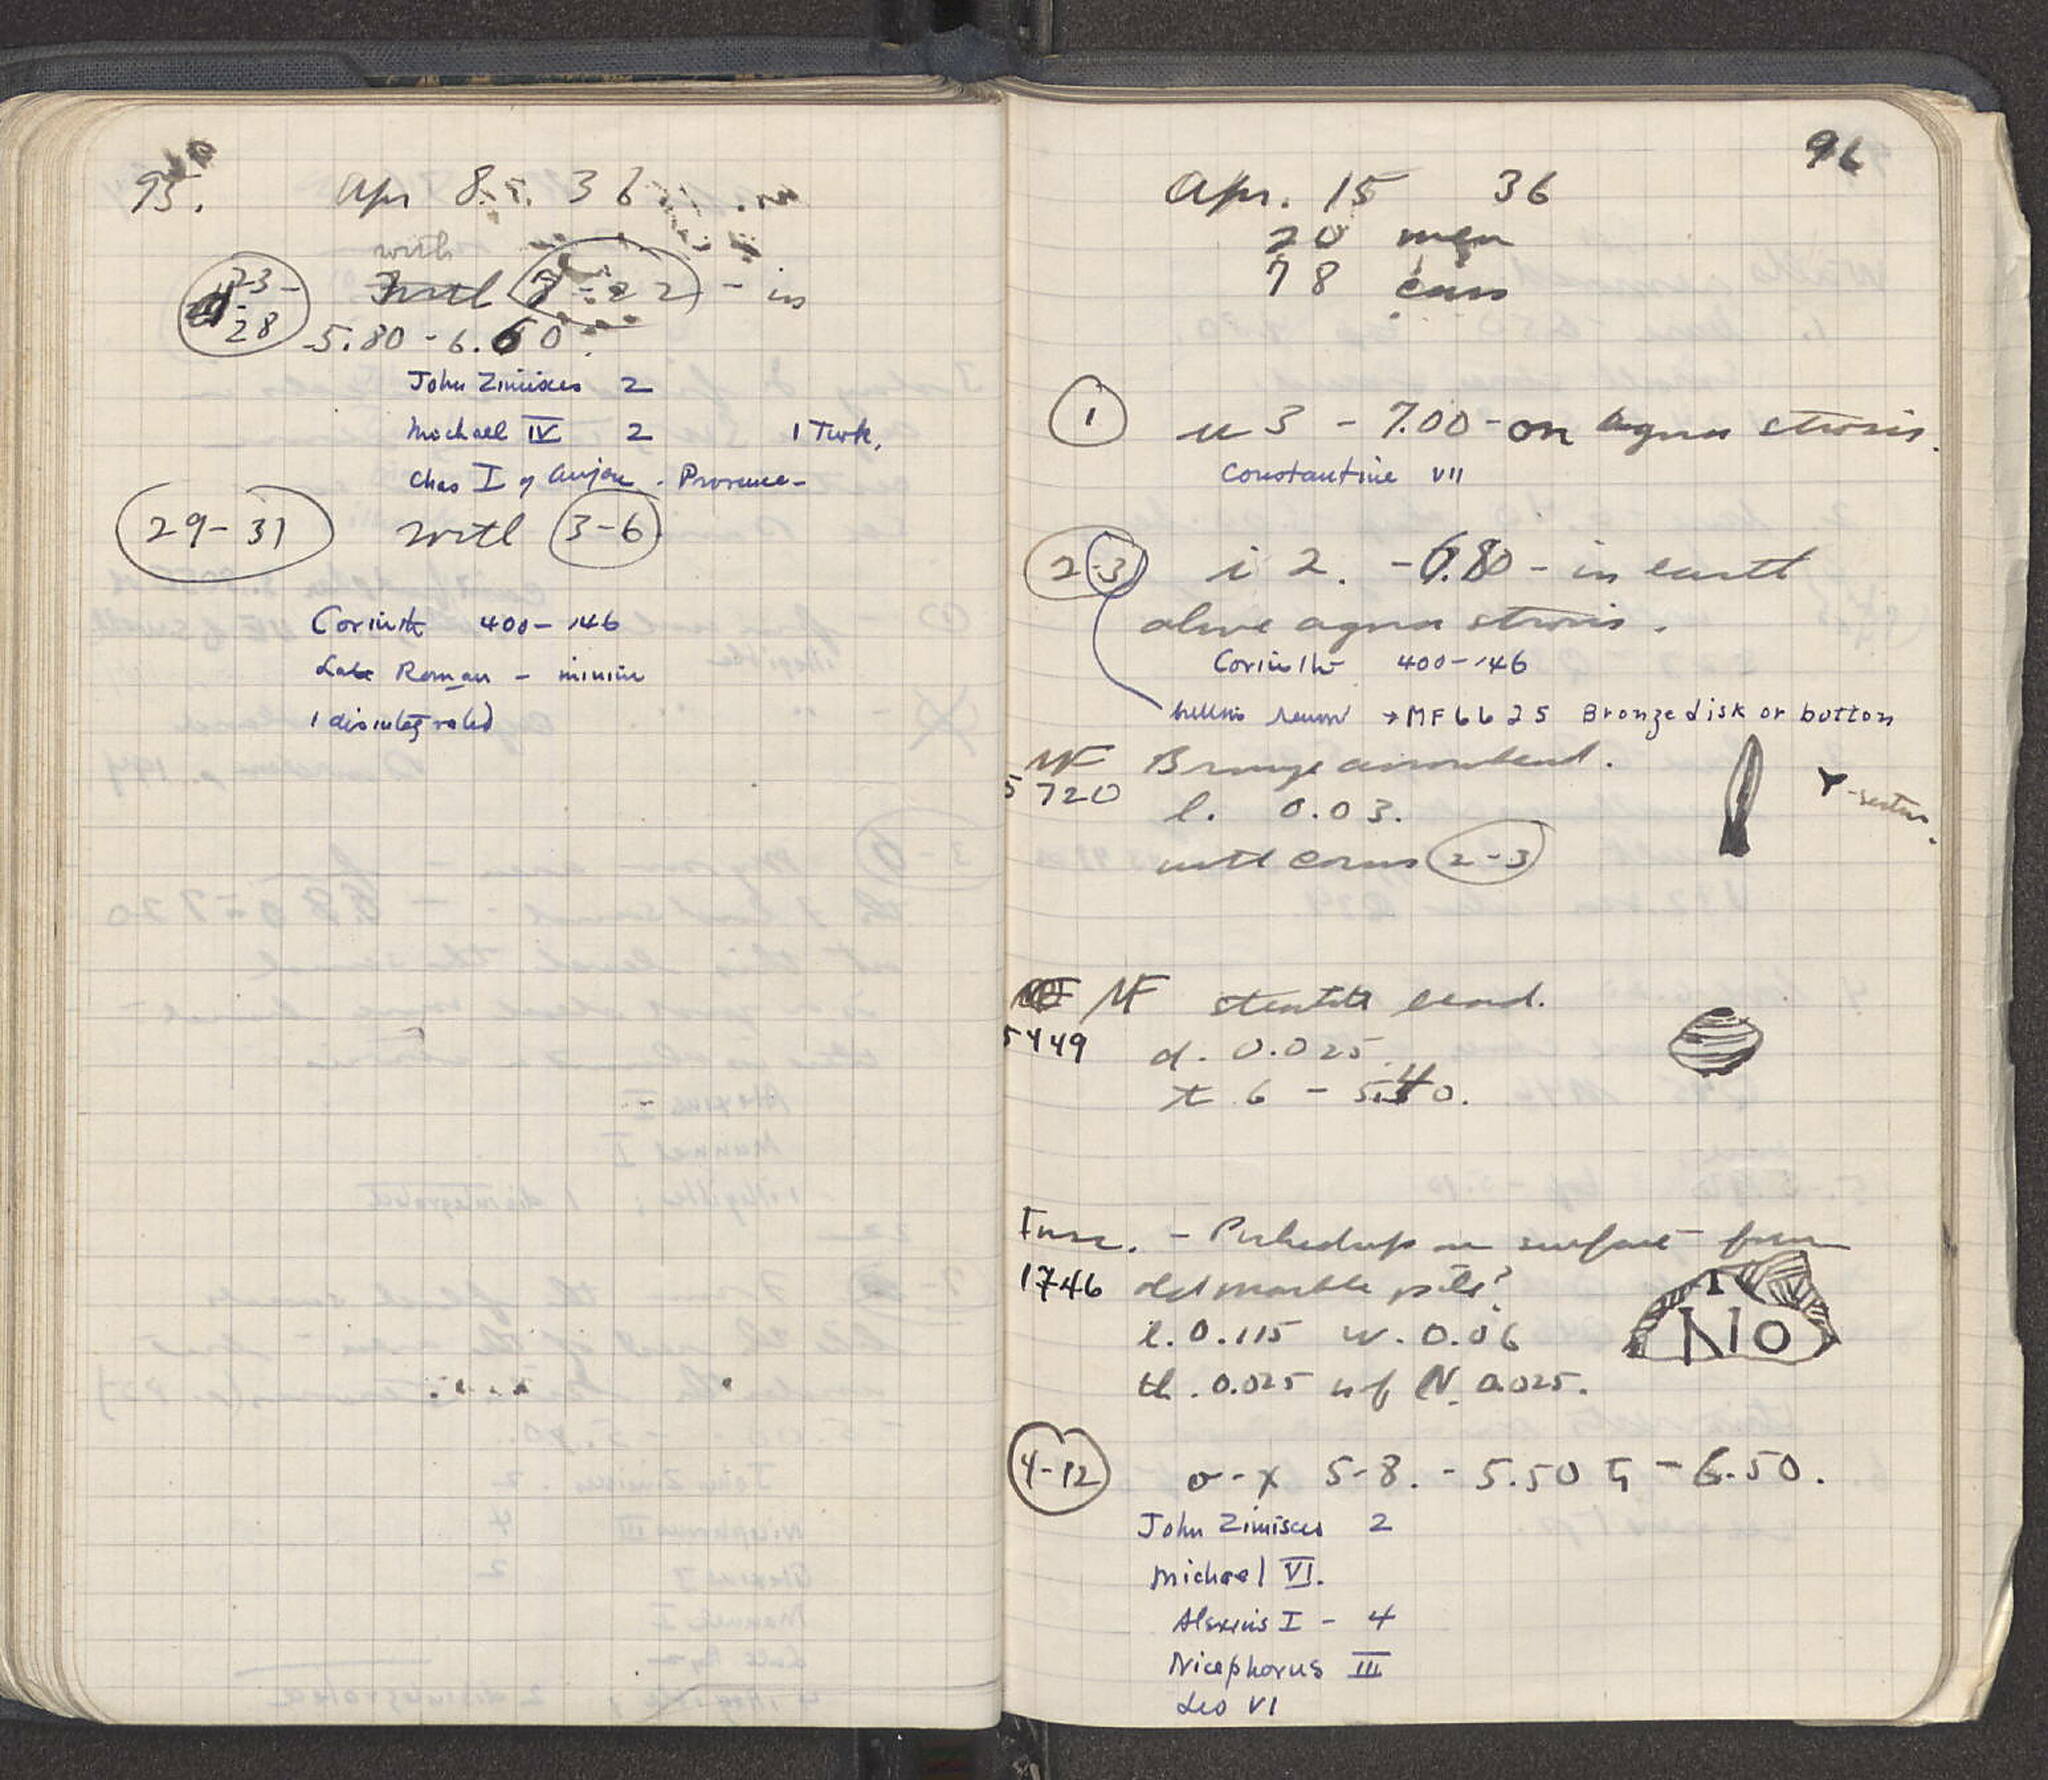 95.
Apr 8. 36
with
23-28 with 7-22 - in
-5.80 - 6.60.
John Zimisces 2
Michael IV 2 1 Turk.
Chas I of Anjou - Provence -
29-31 with 3-6
Corinth 400-146
Late Roman - minim
1 disintegrated
96
Apr. 15 36
20 men
78 cars
1 u 3 - 7.00 - on agora strosis.
Constantine VII
2-3 i 2. - 6.80 - in earth
above agora strosis.
Corinth 400-146
→ MF6625 Bronze disk or button
MF Bronze arrowhead.
5720 l. 0.03. Y-section.
with coins 2-3
MF steatite bead.
5449 d. 0.025.
t 6 - 5.40.
Insc. - Picked up on surface from
1746 old marble pile?
l. 0.115 w. 0.06 NO
th. 0.025 h of N. 0.025.
4-12 o-x 5-8. - 5.50 to - 6.50.
John Zimisces 2
Michael VI.
Alexius I - 4
Nicephorus III
Leo VI